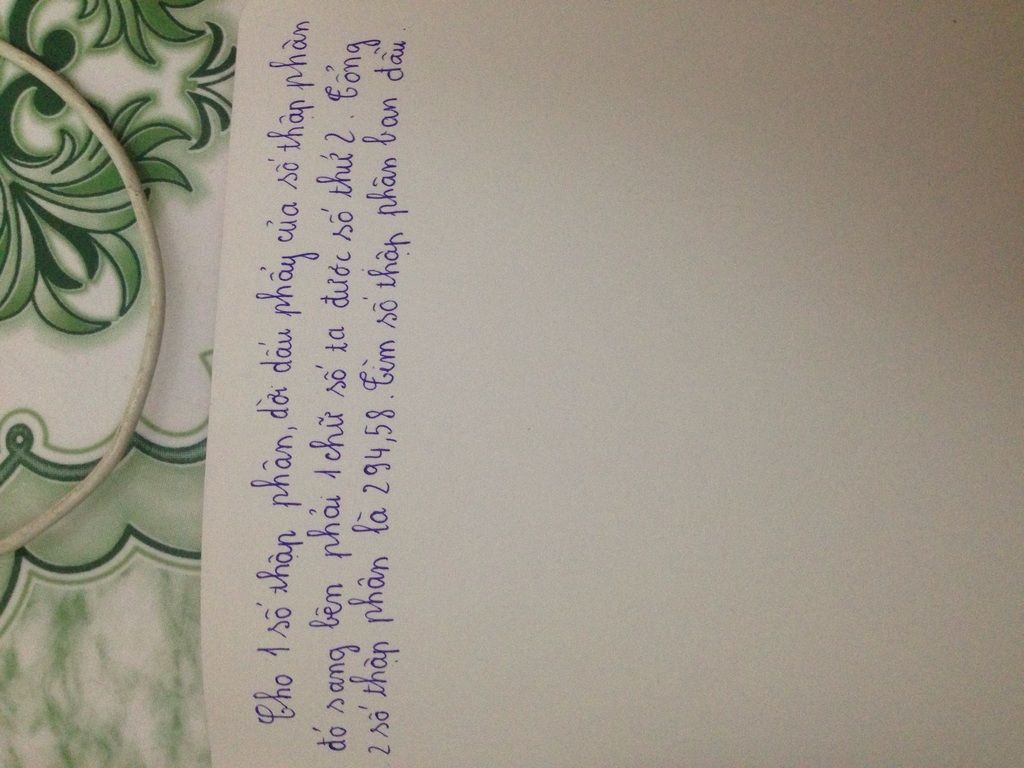 Cho 1 số thập phân, dời dấu phẩy của số thập phân
đó sang bên phải 1 chữ số ta được số thứ 2. Tổng
2 số thập phân là 294,58. Tìm số thập phân ban đầu.